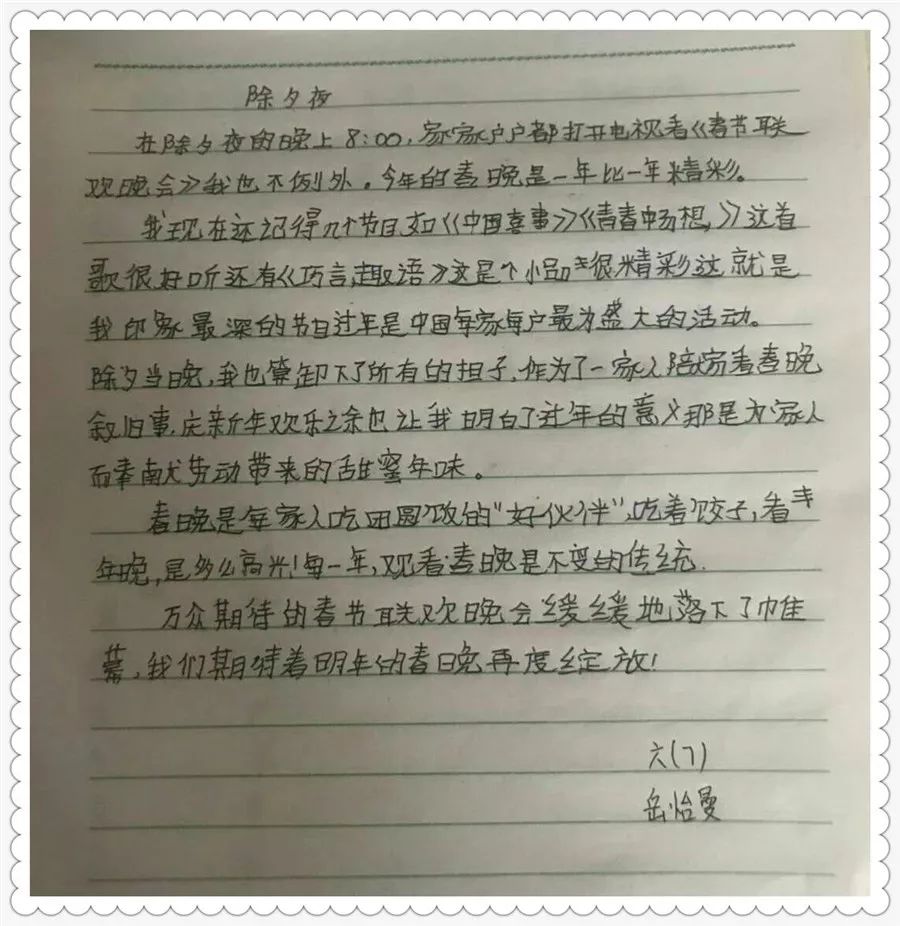 除夕夜
在除夕夜的晚上8:00,家家户户都打开电视看《春节联
欢晚会》我也不例外。今年的春晚是一年比一年精彩。
我现在还记得几个节目,如《中国喜事》《青春畅想》这首
歌很好听还有《巧言趣语》这是个小品也很精彩这就是
我印象最深的节目过年是中国每家每户最为盛大的活动。
除夕当晚,我也算卸下了所有的担子,作为了一家人陪家看春晚
叙旧事,庆新年欢乐之余也让我明白了过年的意义那是为家人
而奉献劳动带来的甜蜜年味。
春晚是每家人吃团圆饭的“好伙伴”,吃着饺子,看
年晚,是多么高兴!每一年,观看春晚是不变的传统.
万众期待的春节联欢晚会缓缓地落下了帷
幕,我们期待着明年的春晚再度绽放!
六(7)
岳怡曼